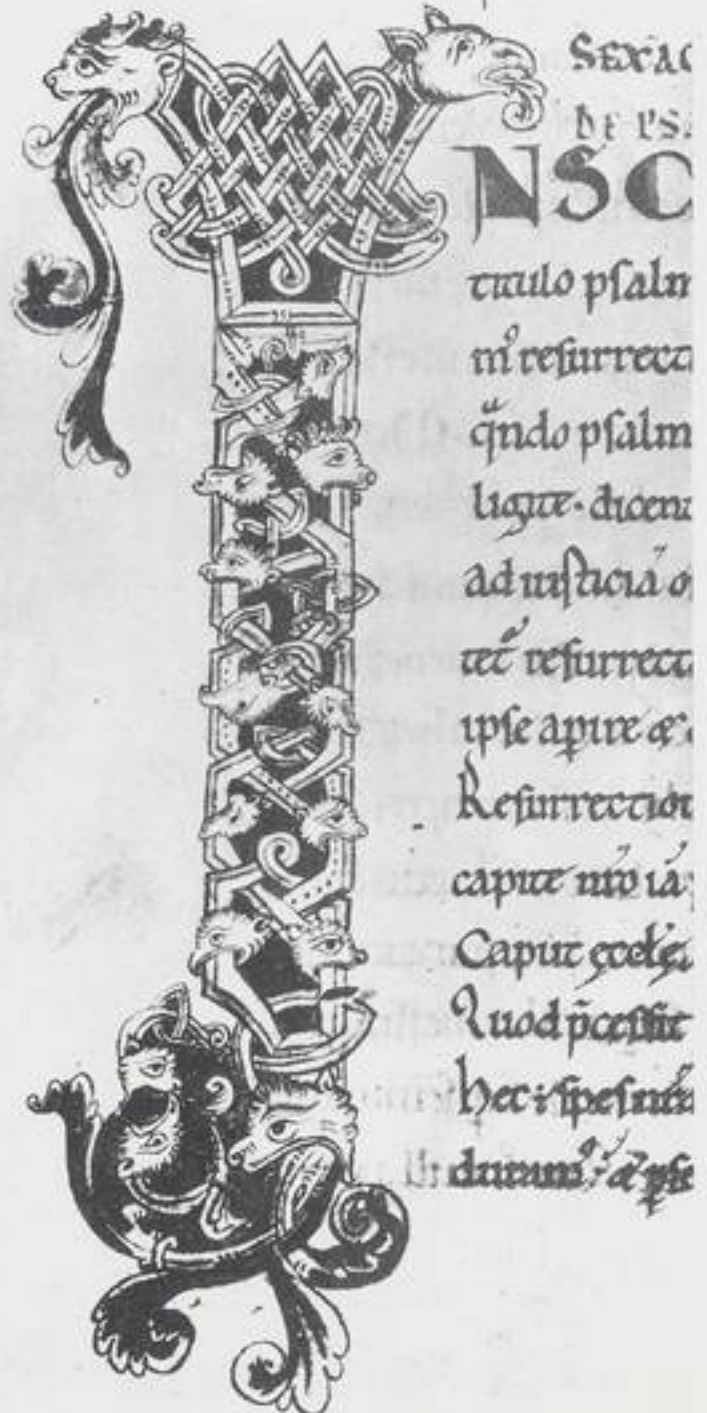 SEXAG
DE PSA
NSC
titulo psalm
m̊ resurrecti
qͣndo psalm
ligite. dicent
ad iusticiā o
tec̄ resurrecti
ipse aꝑite &
Resurrection
capite nr̄o iā
Caput eccle
Quod p̄cessit
hec: spes